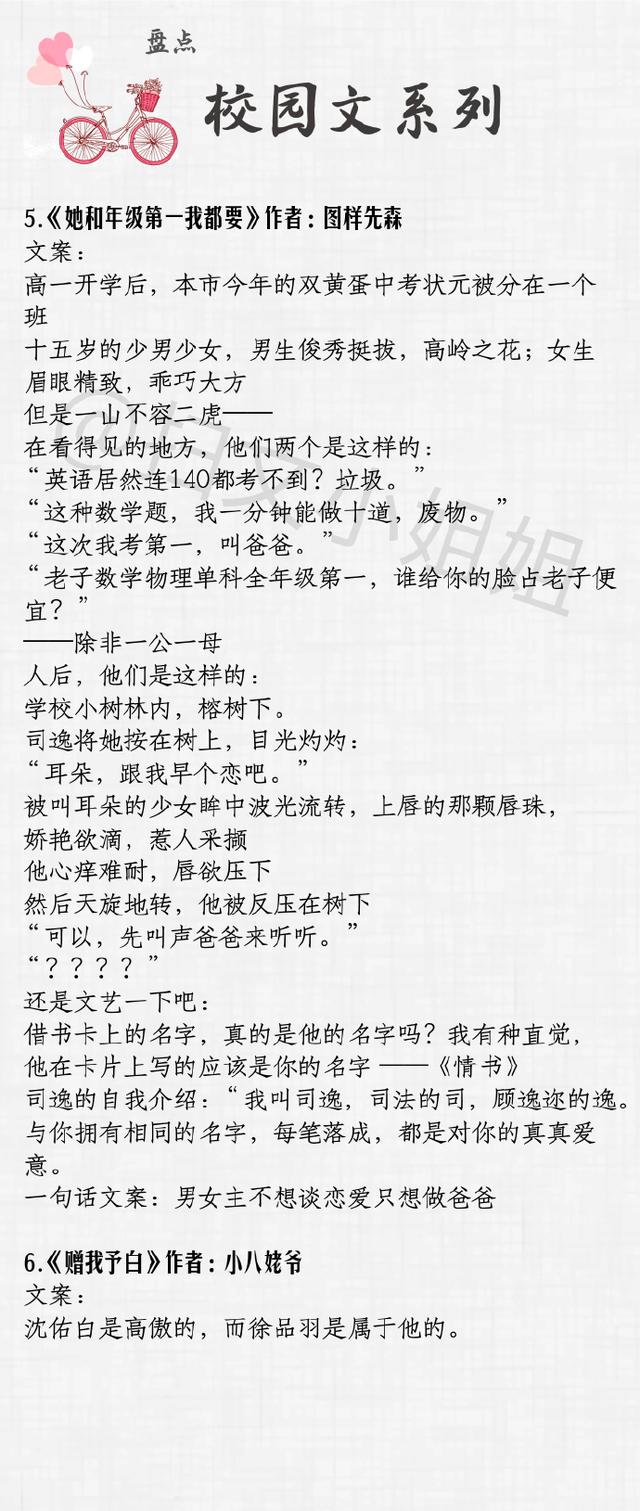 盘点
校园文系列
5.《她和年级第一我都要》作者：图样先森
文案：
高一开学后，本市今年的双黄蛋中考状元被分在一个
班
十五岁的少男少女，男生俊秀挺拔，高岭之花；女生
眉眼精致，乖巧大方
但是一山不容二虎——
在看得见的地方，他们两个是这样的：
“英语居然连140都考不到？垃圾。”
“这种数学题，我一分钟能做十道，废物。”
“这次我考第一，叫爸爸。”
“老子数学物理单科全年级第一，谁给你的脸占老子便
宜？”
——除非一公一母
人后，他们是这样的：
学校小树林内，榕树下。
司逸将她按在树上，目光灼灼：
“耳朵，跟我早个恋吧。”
被叫耳朵的少女眸中波光流转，上唇的那颗唇珠，
娇艳欲滴，惹人采撷
他心痒难耐，唇欲压下
然后天旋地转，他被反压在树下
“可以，先叫声爸爸来听听。”
“？？？？”
还是文艺一下吧：
借书卡上的名字，真的是他的名字吗？我有种直觉，
他在卡片上写的应该是你的名字 ——《情书》
司逸的自我介绍：“我叫司逸，司法的司，顾逸迩的逸。
与你拥有相同的名字，每笔落成，都是对你的真真爱
意。
一句话文案：男女主不想谈恋爱只想做爸爸
6.《赠我予白》作者：小八姥爷
文案：
沈佑白是高傲的，而徐品羽是属于他的。
@扫文小姐姐